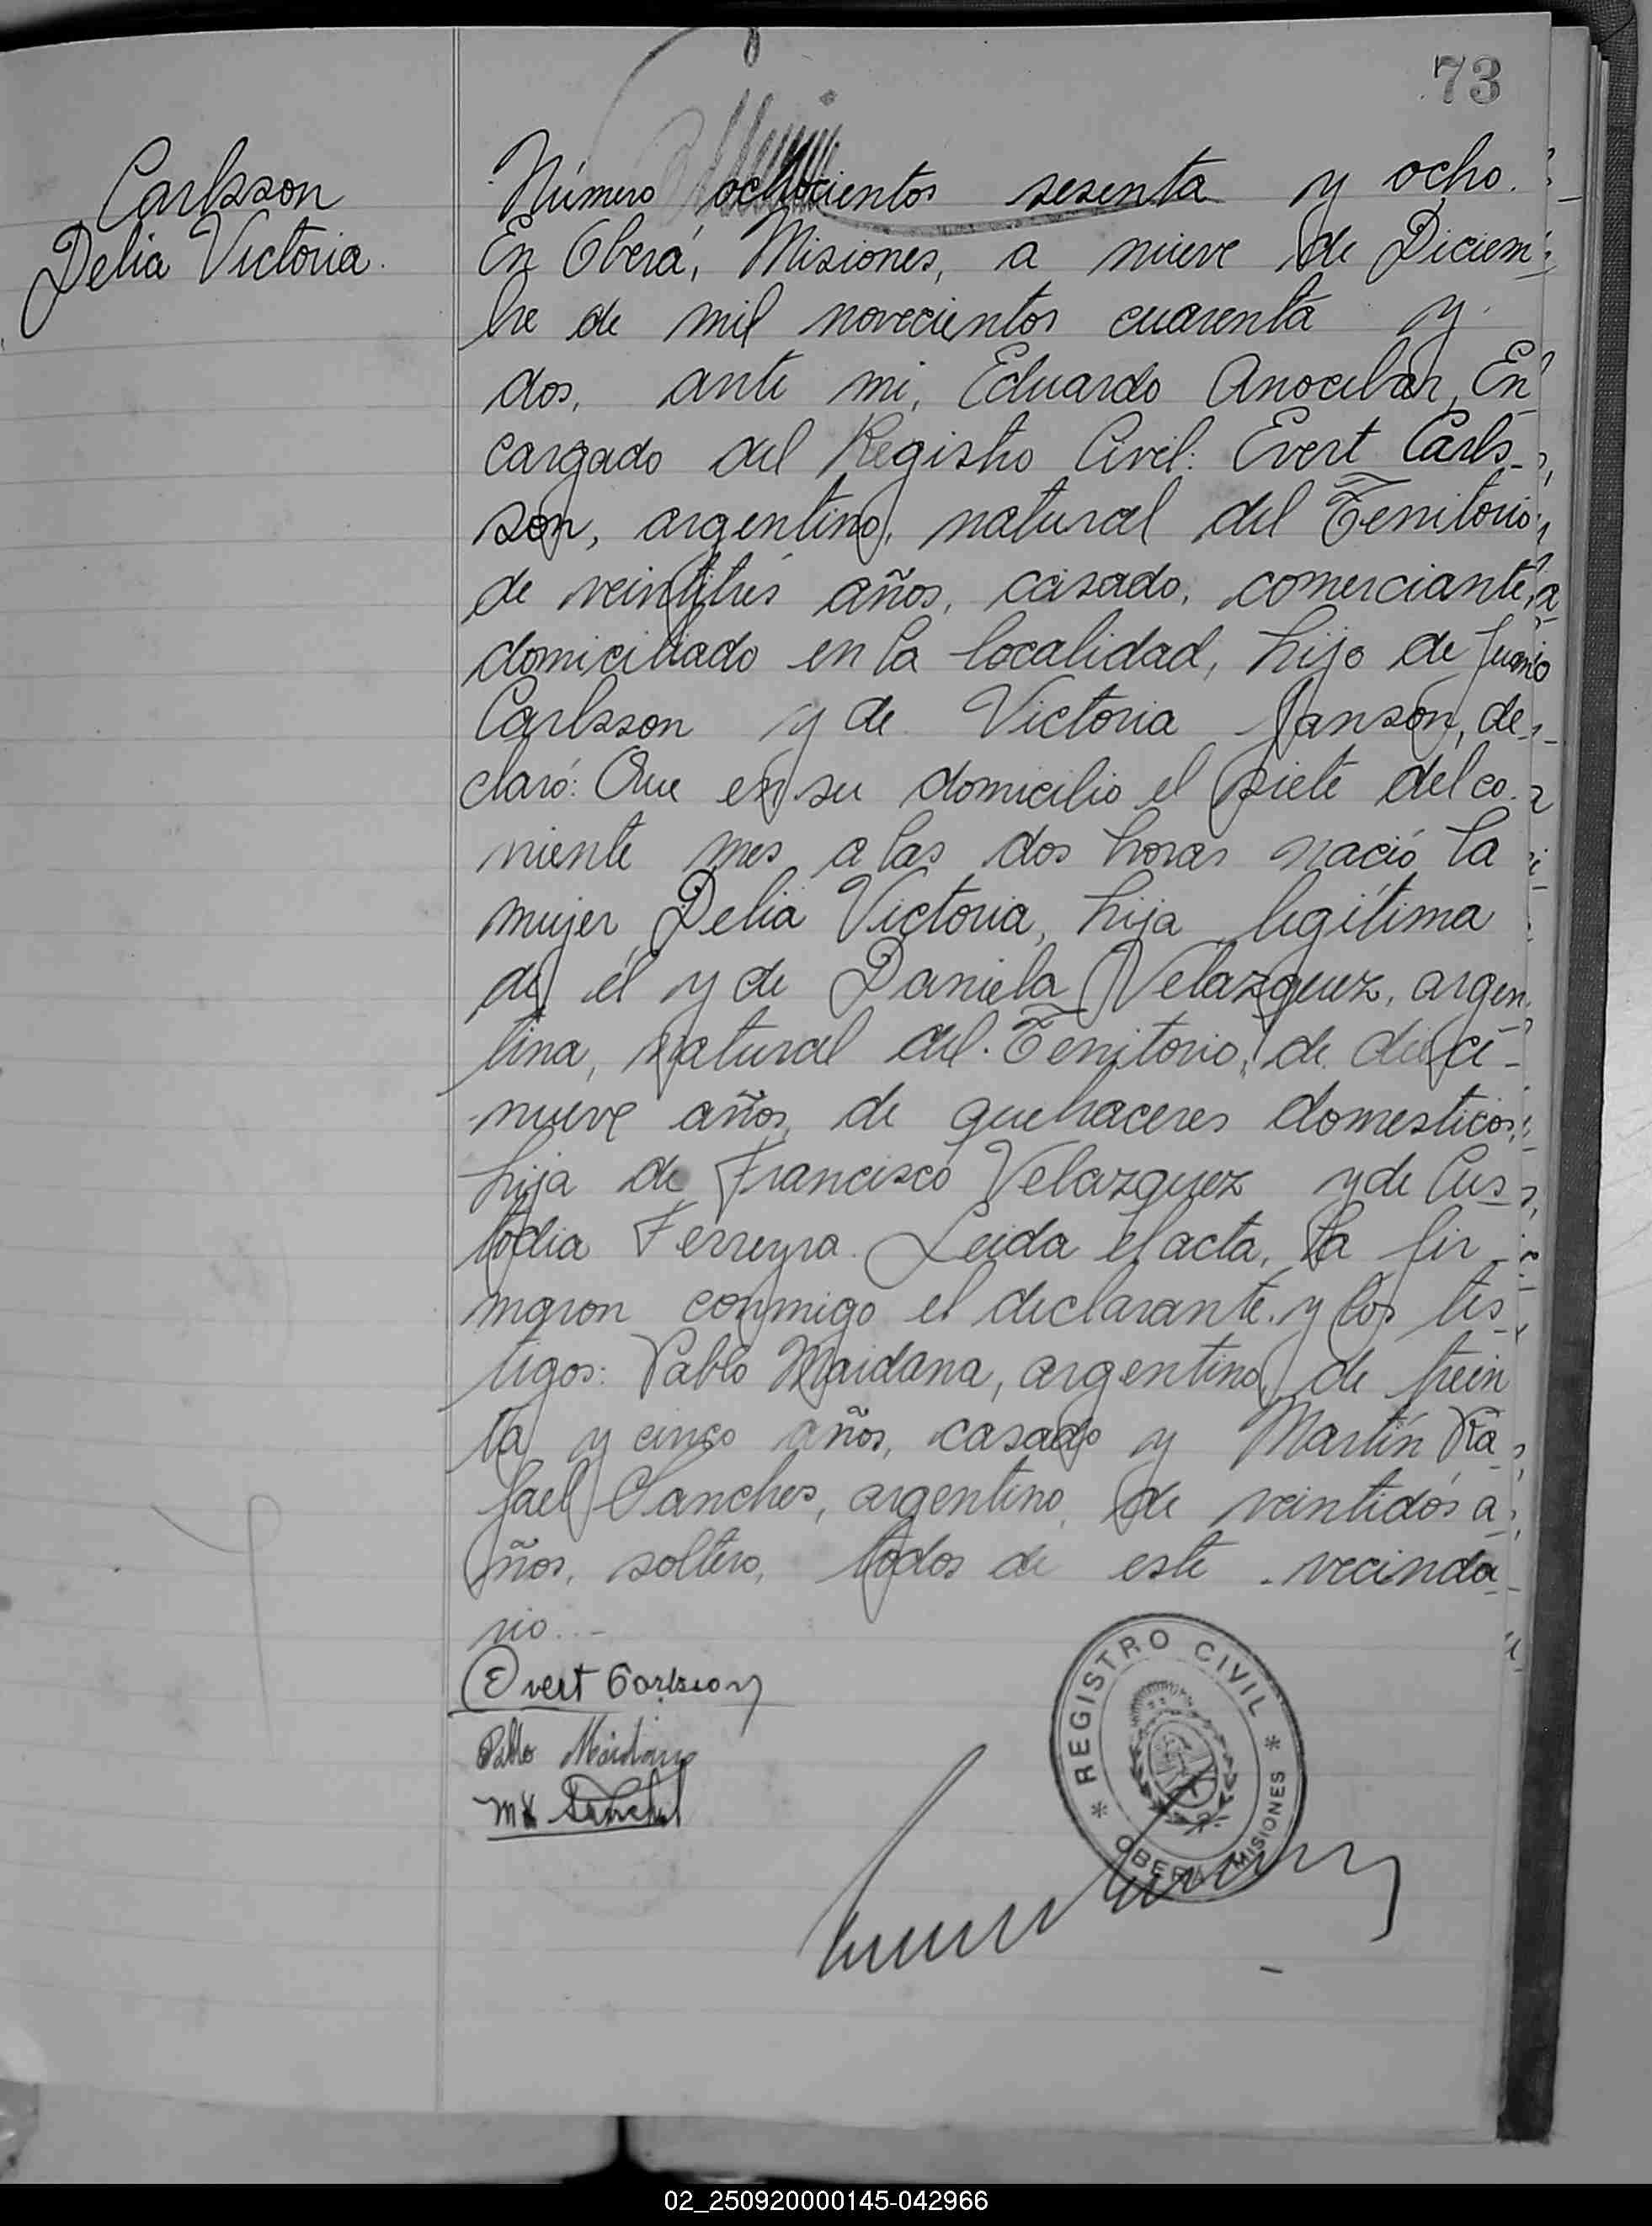 73
Carlsson
Delia Victoria.
Número ochocientos sesenta y ocho.
En Oberá, Misiones, a nueve de Diciem
bre de mil novecientos cuarenta y
dos, ante mi, Eduardo Anocibar, En
cargado del Registro Civil: Evert Carls-
son, argentino, natural del Territorio
de veintitrés años, casado, comerciante,
domiciliado en la localidad, hijo de Juan
Carlsson y de Victoria Janson, de-
claró: Que en su domicilio el siete del co-
rriente mes a las dos horas nació la
mujer Delia Victoria, hija legítima
de él y de Daniela Velazquez, argen
tina, natural del Territorio, de dieci-
nueve años, de quehaceres domesticos,
hija de Francisco Velazquez y de Cus
todia Ferreyra. Leida el acta, la fir
maron conmigo el declarante y los tes
tigos: Pablo Maidana, argentino, de trein
ta y cinco años, casado y Martín Ra
fael Sanches, argentino, de veintidós a
ños, soltero, todos de este vecinda
rio.-
Evert Carlsson
Pablo Maidana
MR Sanchez
* REGISTRO CIVIL *
OBERA MISIONES
02_250920000145-042966